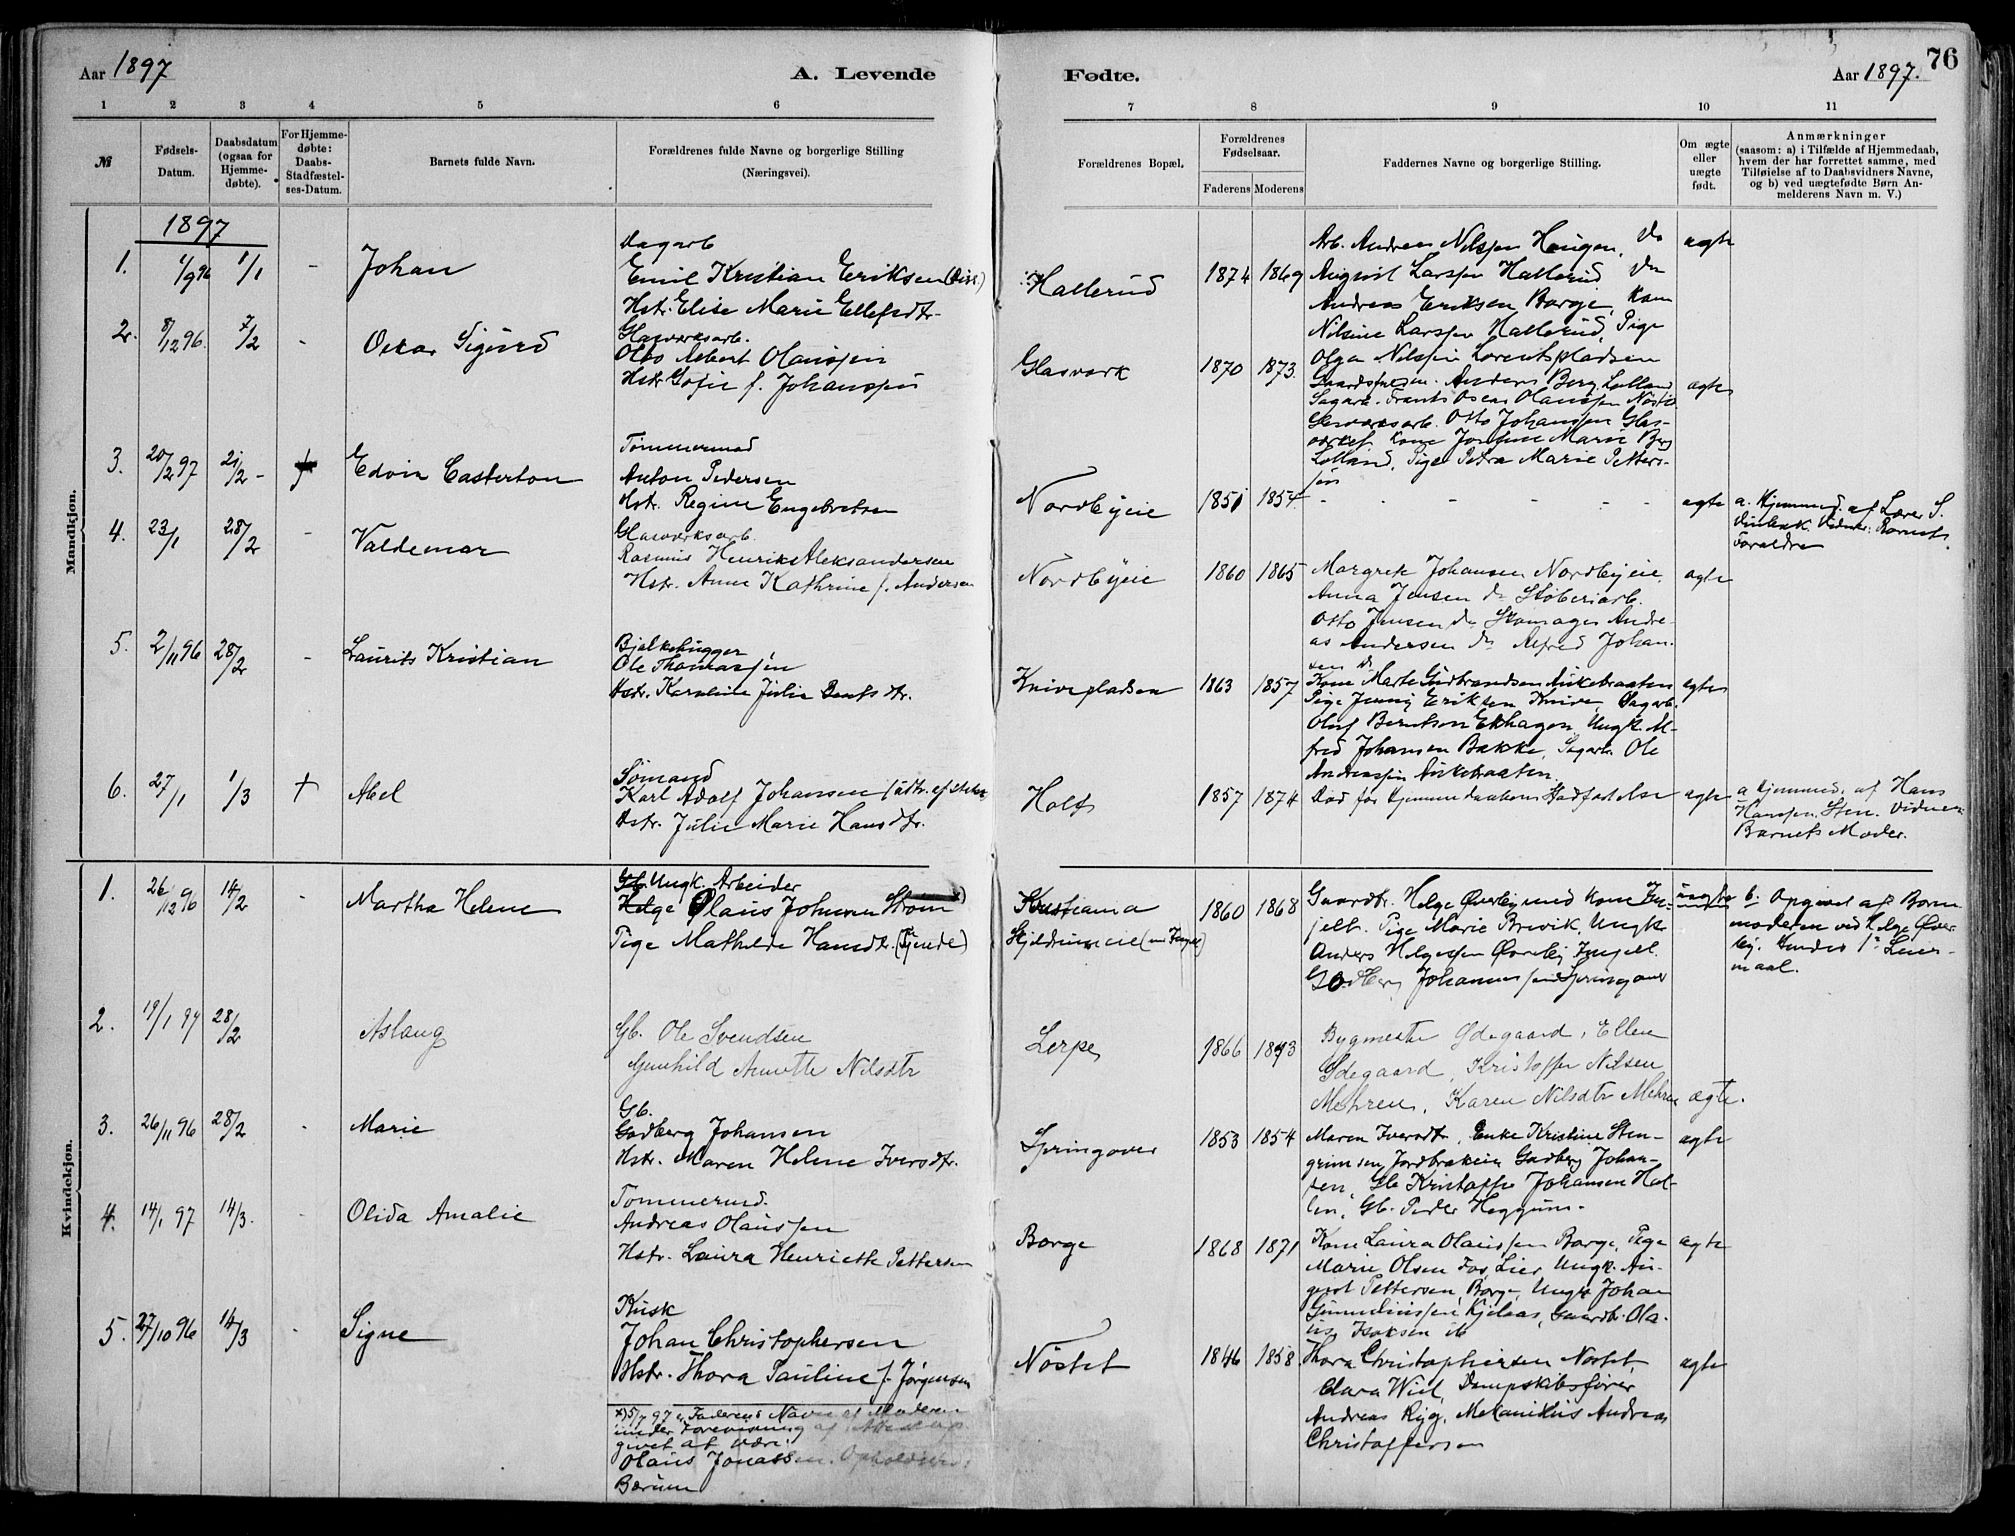 Aar 1897
A. Levende
Fødte.
Aar 1897.
76
1 2 3 4 5 6 7 8 9 10 11
№
Fødsels-
Datum.
Daabsdatum
(ogsaa for
Hjemme-
døbte).
For Hjemme-
døbte:
Daabs-
Stadfæstel-
ses-Datum.
Barnets fulde Navn.
Forældrenes fulde Navne og borgerlige Stilling
(Næringsvei).
Forældrenes Bopæl.
Forældrenes
Fødselsaar.
Faderens Moderens
Faddernes Navne og borgerlige Stilling.
Om ægte
eller
uægte
født.
Anmærkninger
(saasom: a) i Tilfælde af Hjemmedaab,
hvem der har forrettet samme, med
Tilføielse af to Daabsvidners Navne,
og b) ved uægtefødte Børn An-
melderens Navn m. V.)
Mandkjøn.
1897
1. 1/9 96 1/1 - Johan
Dagarb
Emil Kristian Eriksen (Diss.)
Hstr. Elise Marie Ellefsdtr.
Hallerud 1874 1869
Arb. Andreas Nilssen Haugen, Do
August Larssen Hallerud Do
Andreas Eriksen Borge, Kone
Nilsine Larssen Hallerud, Pige
Olga Nilssen Lorentspladsen
ægte
2. 8/12 96. 7/2 - Oskar Sigurd
Glasværksarb.
Olto Albert Olaussen
Hstr. Sofie f. Johanssen
Glasværk 1870 1873.
Anders Berg, Lolland
Sagarb. Frants Oscar Olaussen Nøste
Glasværksarb. Otto Johanssen Glas-
værket Kone Josefine Marie Berg
Lolland, Pige Petra Marie Petters-
sen
ægte
3. 20/2 97 21/2 - Edvin Casterton
Tømmermand
Anton Pedersen
Hstr. Regine Engebretsen
Nordbyeie 1851 1854 - - - - - - ægte
a. Hjemmed. af Lærer S.
Vidner. Barnets
Forældre
4. 23/1 28/2 - Valdemar
Glasværksarb.
Rasmus Henrik Aleksandersen
Hstr. Anne Kathrine f. Andersen
Nordbyeie 1860 1865
Margrete Johansen Nordbyeie
Anna Jensen do Støberiarb.
Otto Jensen do Skomager Andre-
as Andersen do Alfred Johan-
sen do
ægte
5. 2/11 96 28/2 - Laurits Kristian
Bjelkehugger
Ole Thomassen
Hstr. Karoline Julie Berntsdtr.
Kniveplassen 1863 1857
Kone Marte Gudbrandsen Askebraaten
Pige Jenny Eriksen Knive, Dagarb.
Oluf Berntsen Ekhagen, Ungk. Al-
fred Johansen Bakke, Sagarb. Ole
Andreassen Askebraaten.
ægte
6. 27/1 1/3 + Abel
Sømand
Karl Adolf Johansen
Hstr. Julie Marie Hansdtr.
Holt 1857 1874 Død før Hjemmedaabens Stadfæstelse ægte
a Hjemmed. af Hans
Hanssen Sten. Vidner
Barnets Moder.
Kvindekjøn.
1. 26/12 96 14/2 - Martha Helene
Gb. Ungk. Arbeider
Helge Olaus Johansen Strøm
Pige Mathilde Hansdtr. (Tjenede)
Kristiania
1860 1868
Gaardbr. Helge Øverby med Kone In-
jeb. Pige Marie Brevik, Ungk
Anders Helgesen Øverby
Godberg Johannessen Springover
uægte
b. Opgivet af Barne
moderen ved Helge Øver-
by. Hendes 1ste Leier-
maal.
2. 19/1 97 28/2 Aslaug
Gb. Ole Svendsen
Gunhild Annette Nilsdtr
Lerpe 1866 1873
Bygmester Ødegaard, Ellen
Ødegaard, Kristoffer Nilsen
Mehren, Karen Nilsdtr Mehren ægte.
3. 26/11 96 28/2 - Marie
Gb.
Godberg Johansen
Hstr. Maren Helene Iversdtr.
Springover 1853 1854
Maren Iversdtr, Enke Kristine Sten-
grimsen, Godberg Johan-
sen, Gb Kristoffer Johansen Hol-
len, Gb. Peder Heggum.
ægte
4. 14/1 97 14/3. - Olida Amalie
Tømmermd.
Andreas Olaussen
Hstr. Laura Henriette Pettersen
Borge 1868 1871
Kone Laura Olaussen Borge, Pige
Marie Olsen Fos, Lier Ungk. Au-
gust Pettersen, Borge, Ungk Johan
Gundersen Kjelaas, Gaardbr. Ola-
us Isaksen ib
ægte
5. 27/10 96 14/3 - Signe
Kusk
Johan Christophersen
Hstr. Thora Pauline f. Jørgensen
Nøstet 1846 1858.
Thora Christophersen Nøstet,
Clara Wiil, Dampskibsfører
Andreas Ryg, Mekanikus Andreas
Christoffersen
ægte
x) 5/7 97 er Faderens Navn af Moderen
under Forevisning af Attest op-
givet at være:
Olaus Jonassen. Opholdssted:
Bærum